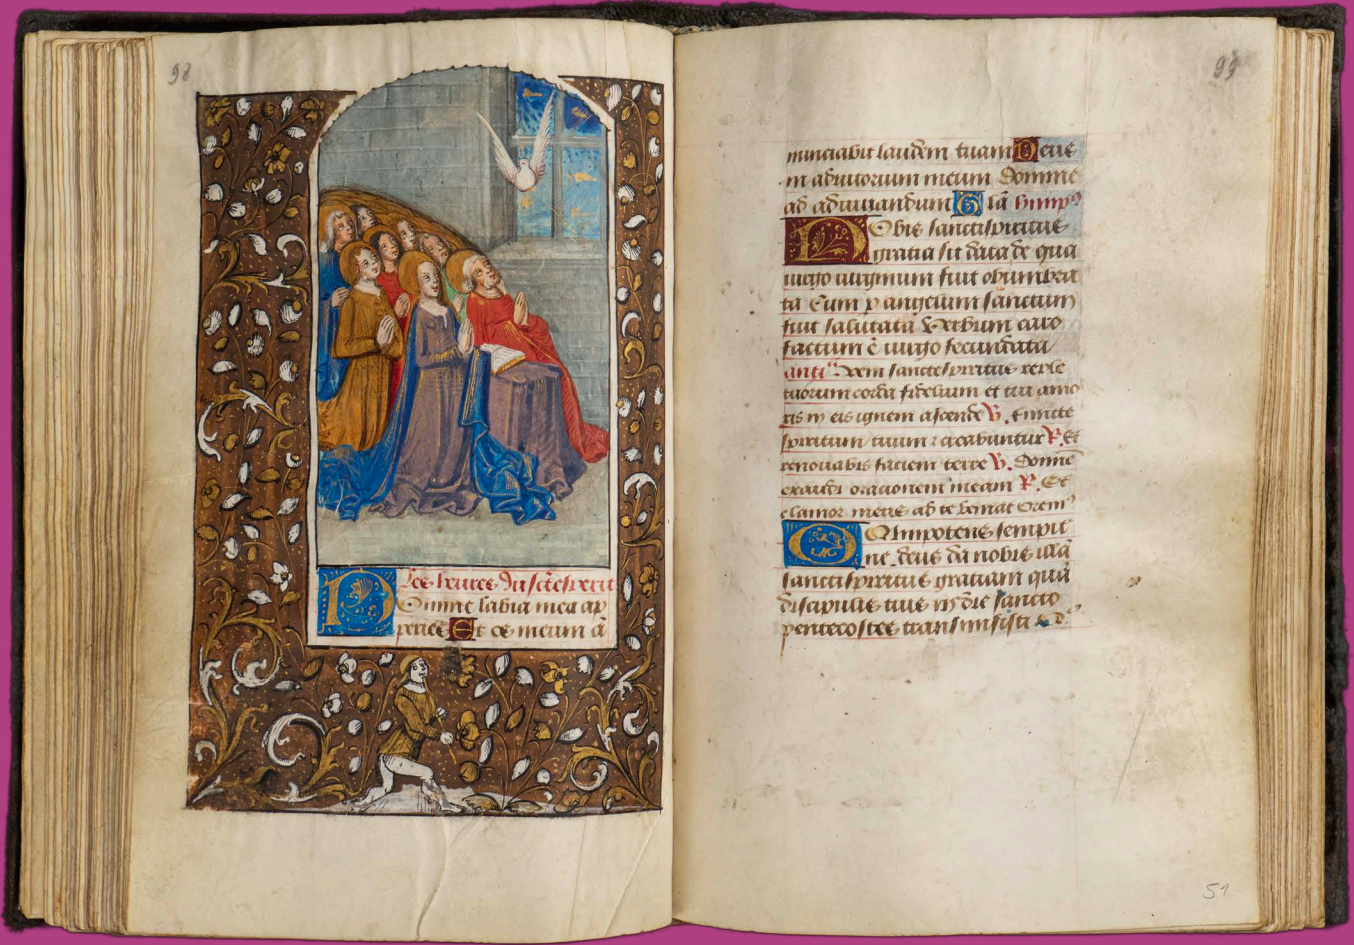 98
Les heures du sc̄t esperit
Domine labia mea ap
peries Et os meum a
99
nunciabit laudem tuam Deus
in adiutorium meum Domine
ad adiuuandum Glā himpꝰ
Nobis sanctispiritus
gratia sit data de qua
uirgo uirginum fuit obumbra
ta Cum p angelum sanctum
fuit salutata Verbum caro
factum ē uirgo fecundata
anti Veni sanctespiritus reple
tuorum corda fidelium et tui amo
ris in eis ignem ascende V. Emicte
spiritum tuum ⁊ creabuntur R. Et
renouabis faciem terre V. Domine
exaudi orationem meam R. Et
clamor meus ad te veniat Orem
Omnipotens sempit
ne deus da nobis illā
sanctispiritus gratiam quā
discipulis tuis in die sancto
pentecostes transmisisti
51